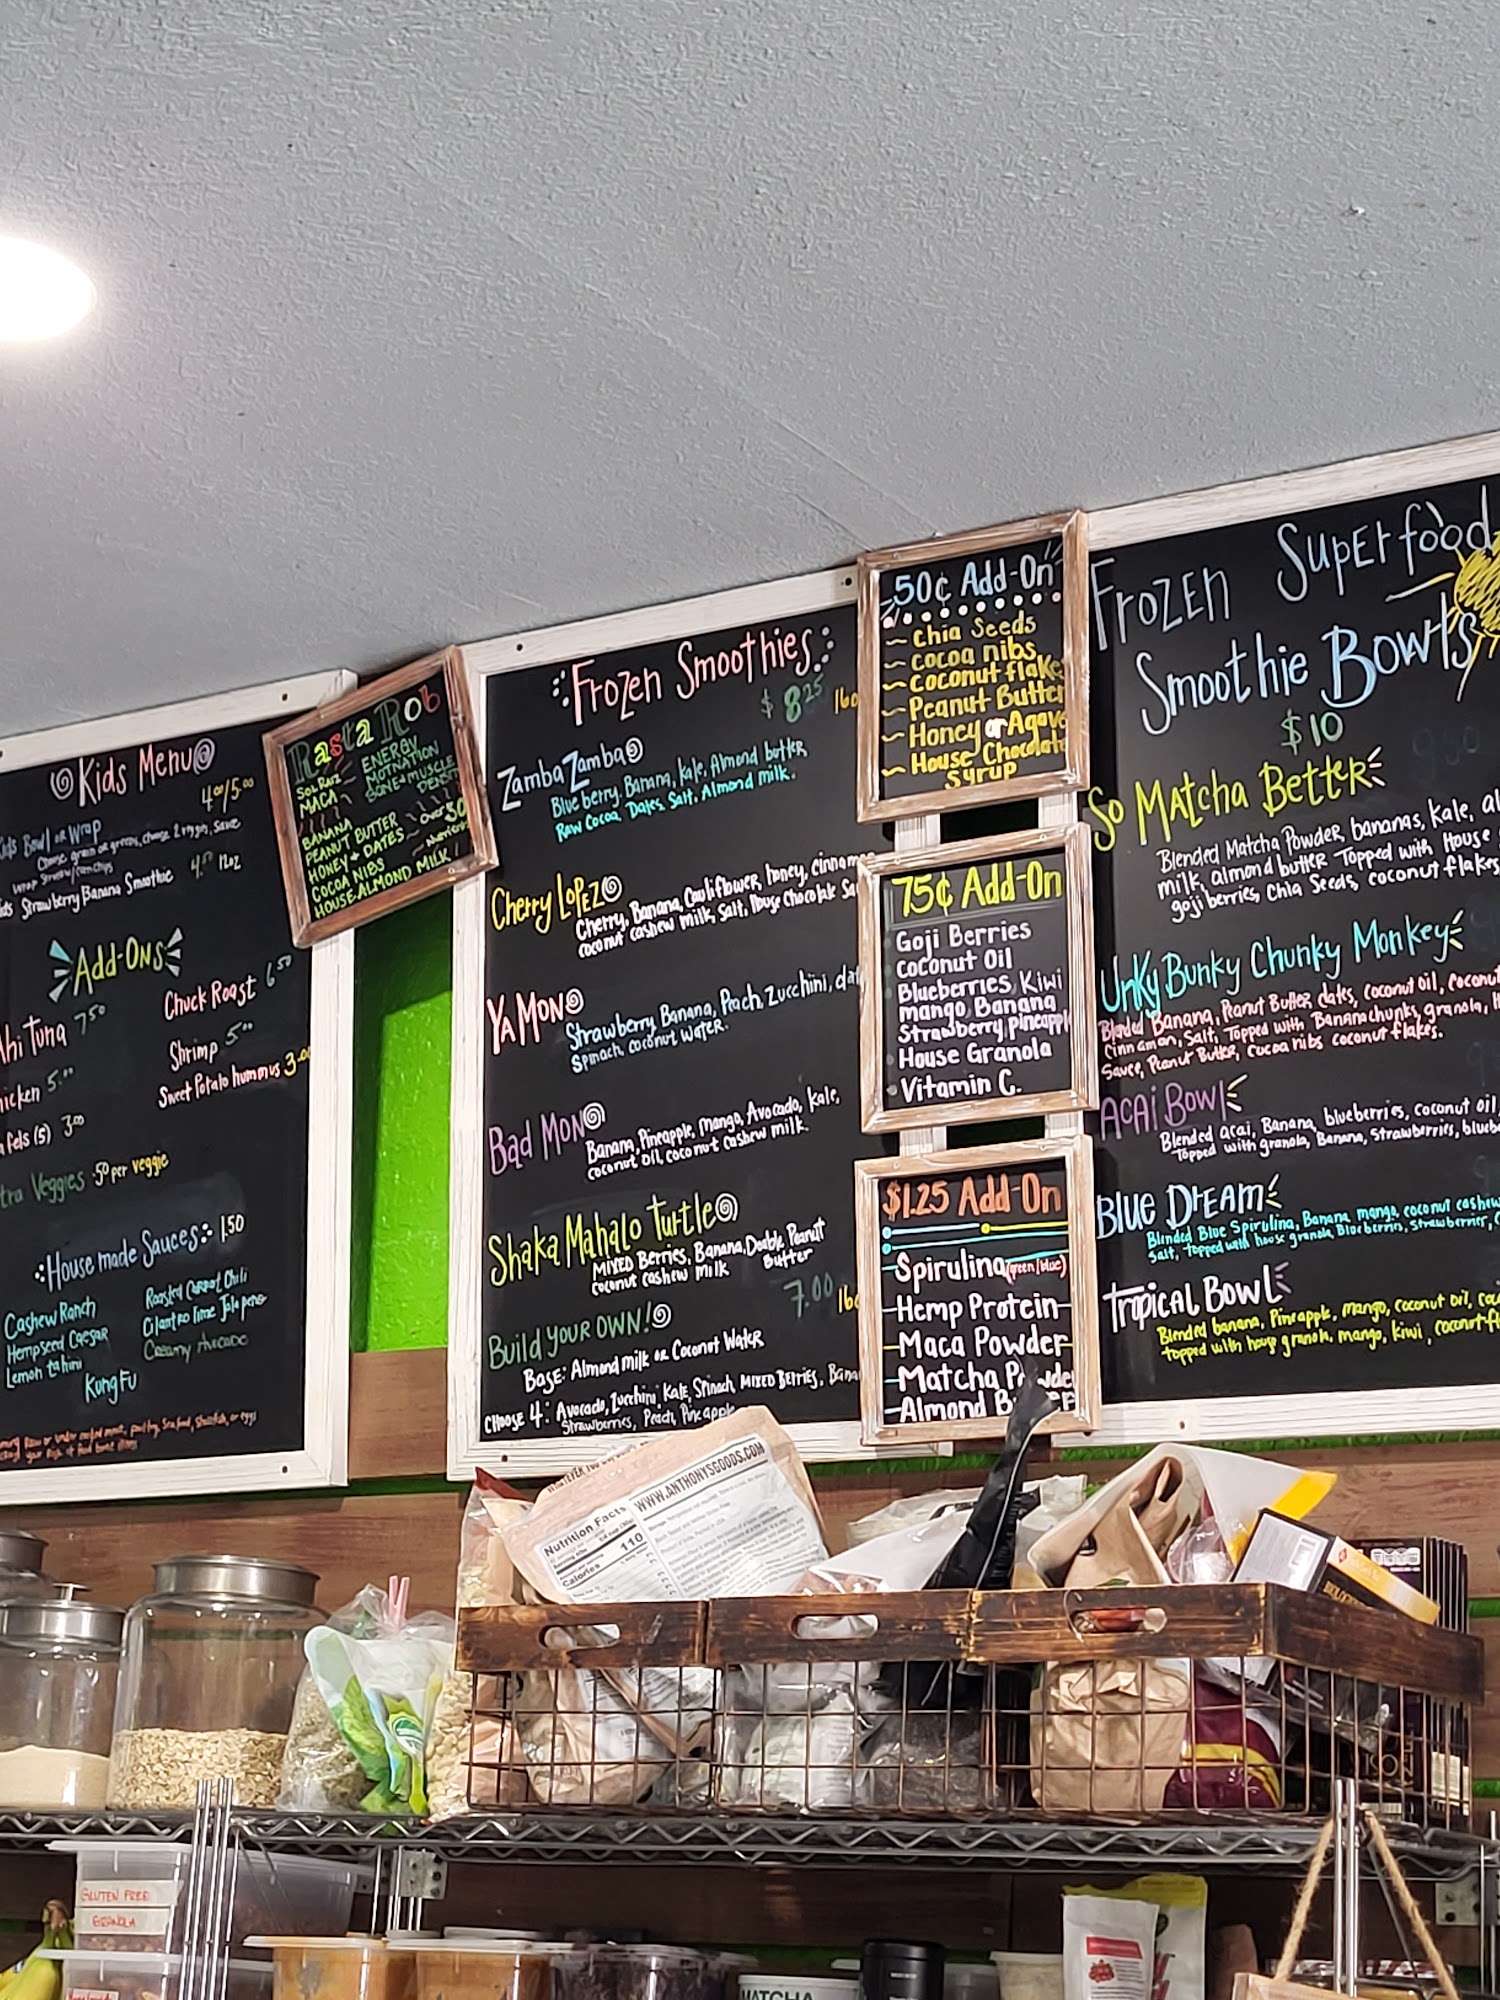 Kids Menu
4.00/5.00
Kids Bowl or Wrap
Choose grain or greens, choose 2 veggies, sauce
Strawberry Banana Smoothie 4.50 12oz
Add-Ons
Ahi Tuna 7.50
Chicken 5.00
fels (5) 3.00
Extra Veggies .50 per veggie
Chuck Roast 6.50
Shrimp 5.00
Sweet Potato hummus 3.00
House made Sauces 1.50
Cashew Ranch
Hempseed Caesar
Lemon tahini
Kung Fu
Roasted Carrot Chili
Cilantro Lime Jalapeno
Creamy Avocado
Rasta Rob
MACA
ENERGY
MOTIVATION
BONE + MUSCLE
BANANA
PEANUT BUTTER
HONEY + DATES
COCOA NIBS
HOUSE ALMOND MILK!
Frozen Smoothies
$ 8.25 16o
Zamba Zamba
Blueberry, Banana, Kale, Almond butter,
Raw Cocoa, Dates, Salt, Almond milk.
Cherry Lopez
Cherry, Banana, Cauliflower, honey, cinnam
coconut cashew milk, Salt, House Chocolate Sa
Ya Mon
Strawberry, Banana, Peach, Zucchini, dat
Spinach, coconut water.
Bad Mon
Banana, Pineapple, mango, Avocado, kale,
coconut oil, coconut cashew milk.
Shaka Mahalo Turtle
MIXED Berries, Banana, Double Peanut
Butter
coconut cashew milk
7.00 16o
Build your OWN!
Base: Almond milk or Coconut Water
Choose 4: Avocado, Zucchini, Kale, Spinach, MIXED BERRIES, Bana
Strawberries, Peach, Pineapple
50¢ Add-On
~ Chia Seeds
~ Cocoa nibs
~ Coconut flake
~ Peanut Butter
~ Honey or Agave
~ House Chocolate
Syrup
75¢ Add-On
Goji Berries
Coconut Oil
Blueberries Kiwi
mango Banana
Strawberry, pineappl
House Granola
Vitamin C.
$1.25 Add-On
Spirulina (green/blue)
Hemp Protein
Maca Powder
Matcha Powder
Almond B
Frozen Superfood
Smoothie Bowls
$10
So Matcha Better
Blended Matcha Powder, bananas, Kale, al
milk, almond butter Topped with House
goji berries, chia Seeds, coconut flakes
Unky Bunky Chunky Monkey
Blended Banana, Peanut Butter, dates, coconut oil, coconut
cinnamon, Salt, Topped with Banana chunks, granola, H
Sauce, Peanut Butter, cocoa nibs coconut flakes.
Acai Bowl
Blended acai, Banana, blueberries, coconut oil
Topped with granola, Banana, Strawberries, blueb
Blue Dream
Blended Blue Spirulina, Banana, mango, coconut cashew
Salt, topped with house granola, Blueberries, Strawberries,
Tropical Bowl
Blended banana, Pineapple, mango, coconut oil, coc
topped with house granola, mango, kiwi, coconut fl
WWW.ANTHONYSGOODS.COM
Nutrition Facts
Calories 110
GLUTEN FREE
GRANOLA
MATCHA